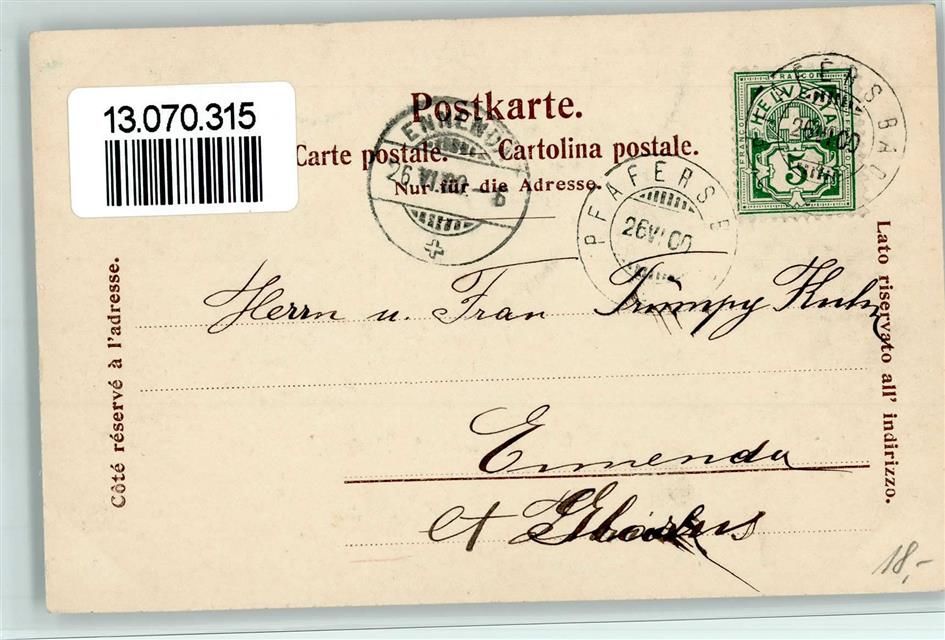 13.070.315
Postkarte.
Carte postale. Cartolina postale.
Nur für die Adresse.
ENNENDA
26.VI.00 6
PFAEFERS B
26 VI 00
FERS BAD
26 VI 00
FRANCO
HELVETIA
5
Côté réservé à l'adresse.
Lato riservato all' indirizzo.
Herrn u. Frau Trümpy
Ennenda
Ct Glarus
18,-